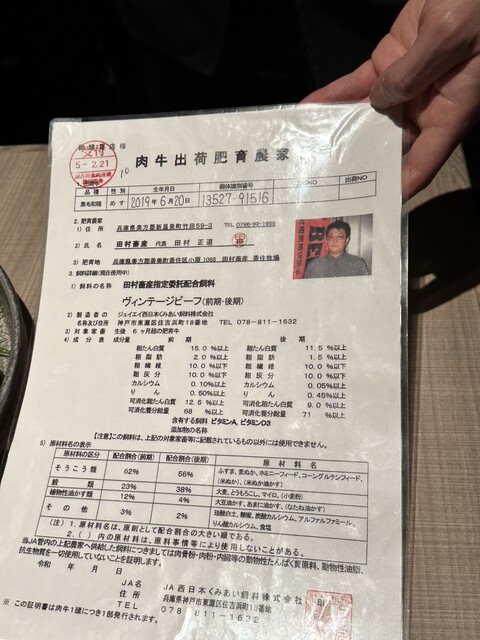 肉牛出荷肥育農家
5-2.21
品種 性別 生年月日 個体識別番号 出荷NO
黒毛和種 めす 2019年6月20日 13527-91516
2. 肥育農家
1) 住所 兵庫県美方郡新温泉町竹田59-3 TEL 0796-92-1955
2) 氏名 田村畜産 代表 田村 正道
3) 肥育地 兵庫県美方郡香美町香住区小原1068 田村畜産 香住牧場
3. 飼料詳細(現在使用中)
1) 飼料の名称 田村畜産指定委託配合飼料
ヴィンテージビーフ(前期・後期)
2) 製造者の ジェイエイ西日本くみあい飼料株式会社
名称及び住所 神戸市東灘区住吉浜町18番地 TEL 078-811-1632
3) 対象家畜 生後 6ヶ月超の肥育牛
4) 成分表 成分量 前期 後期
粗たん白質 15.0 %以上 粗たん白質 11.5 %以上
粗脂肪 2.0 %以上 粗脂肪 1.5 %以上
粗繊維 10.0 %以下 粗繊維 10.0 %以下
粗灰分 10.0 %以下 粗灰分 10.0 %以下
カルシウム 0.10%以上 カルシウム 0.05%以上
りん 0.50%以上 りん 0.45%以上
可消化粗たん白質 12.5 %以上 可消化粗たん白質 9.0 %以上
可消化養分総量 68 %以上 可消化養分総量 71 %以上
含有する飼料 ビタミンA, ビタミンD3
添加物の名称
【注意】この飼料は、上記の対象家畜等に記載されているもの以外には使用できません。
5) 原材料名の表示
原材料の区分 配合割合(前期) 配合割合(後期) 原材料名
そうこう類 62% 56% ふすま、麦ぬか、ホミニーフィード、コーングルテンフィード、(米ぬか)、(米ぬか油かす)
穀類 23% 38% 大麦、とうもろこし、マイロ、(小麦粉)
植物性油かす類 12% 4% 大豆油かす、あまに油かす、(なたね油かす)
その他 3% 2% 珪酸白土、糖蜜、炭酸カルシウム、アルファルファミール、りん酸カルシウム、食塩
(注) 1. 原材料名は、原則として配合割合の大きい順である。
2. ( ) 内の原材料は、原料事情等により使用しないことがある。
当JA管内の上記農家へ供給した飼料につきましては肉骨粉・肉粉・内臓等の動物性たんぱく質原料、動物性油脂、
抗生物質を一切使用していないことを証明します。
令和 年 月 日
JA名 JA西日本くみあい飼料株式会社
住所 兵庫県神戸市東灘区住吉浜町18番地
TEL 078-811-1632
※ この証明書は肉牛1頭につき1部発行されます。